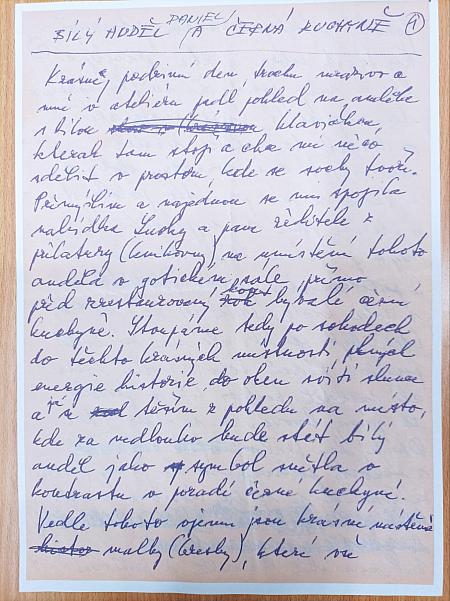 BÍLÝ ANDĚL DANIEL A ČERNÁ KUCHYNĚ 1
Krásný, podzimní den, trochu mrazivo a
mně v ateliéru padl pohled na anděla
s bílou hlavičkou,
kterak tam stojí a chce mi něco
sdělit v prostoru, kde se sochy tvoří.
Přemýšlím a najednou se mi spojila
nabídka Luďky a pana ředitele z
(knihovny) na umístění tohoto
anděla v gotickém sále, přímo
před zrestaurovaný kout bývalé černé
kuchyně. Stoupáme tedy po schodech
do těchto krásných místností, plných
energie historie, do oken svítí slunce
a já se těším z pohledu na místo,
kde za nedlouho bude stát bílý
anděl jako symbol světla v
kontrastu v pozadí černé kuchyně.
Vedle tohoto výjevu jsou krásné nástěnné
malby (fresky), které